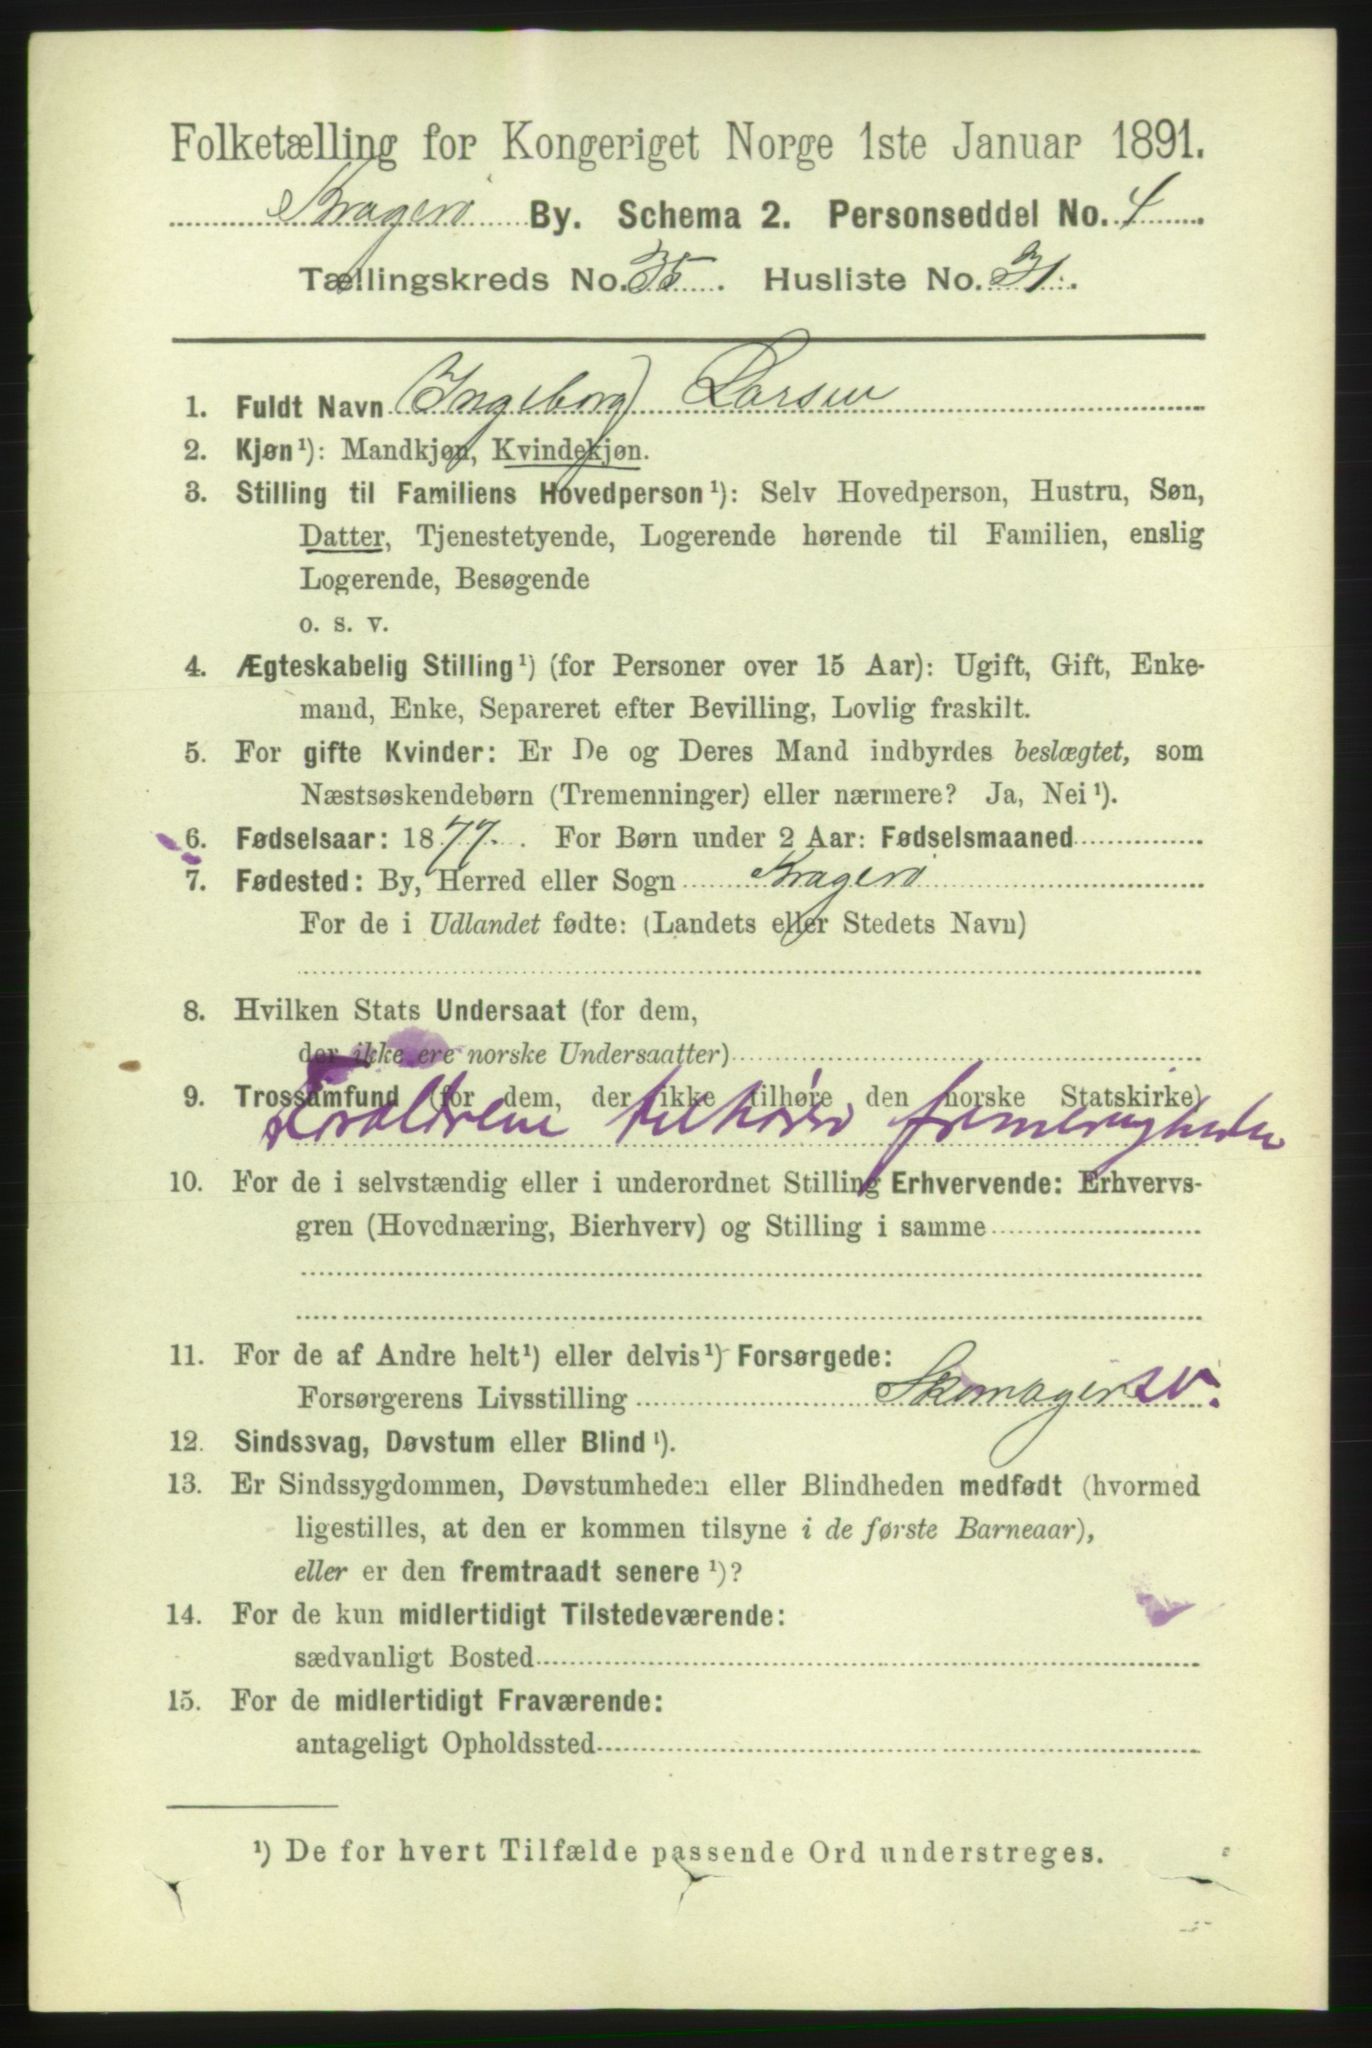 Folketælling for Kongeriget Norge 1ste Januar 1891.
Kragerø By. Schema 2. Personseddel No. 4
Tællingskreds No. 35. Husliste No. 31.
1. Fuldt Navn (Ingeborg) Larsen
2. Kjøn¹): Mandkjøn, Kvindekjøn.
3. Stilling til Familiens Hovedperson¹): Selv Hovedperson, Hustru, Søn,
Datter, Tjenestetyende, Logerende hørende til Familien, enslig
Logerende, Besøgende
o. s. v.
4. Ægteskabelig Stilling¹) (for Personer over 15 Aar): Ugift, Gift, Enke-
mand, Enke, Separeret efter Bevilling, Lovlig fraskilt.
5. For gifte Kvinder: Er De og Deres Mand indbyrdes beslægtet, som
Næstsøskendebørn (Tremenninger) eller nærmere? Ja, Nei¹).
6. Fødselsaar: 1877. For Børn under 2 Aar: Fødselsmaaned
7. Fødested: By, Herred eller Sogn Kragerø
For de i Udlandet fødte: (Landets eller Stedets Navn)
8. Hvilken Stats Undersaat (for dem,
der ikke ere norske Undersaatter)
9. Trossamfund (for dem, der ikke tilhøre den norske Statskirke)
Foraldrene tilhører frimenigheden
10. For de i selvstændig eller i underordnet Stilling Erhvervende: Erhvervs-
gren (Hovednæring, Bierhverv) og Stilling i samme
11. For de af Andre helt¹) eller delvis¹) Forsørgede:
Forsørgerens Livsstilling Skomager sv.
12. Sindssvag, Døvstum eller Blind¹).
13. Er Sindssygdommen, Døvstumheden eller Blindheden medfødt (hvormed
ligestilles, at den er kommen tilsyne i de første Barneaar),
eller er den fremtraadt senere¹)?
14. For de kun midlertidigt Tilstedeværende:
sædvanligt Bosted
15. For de midlertidigt Fraværende:
antageligt Opholdssted
¹) De for hvert Tilfælde passende Ord understreges.